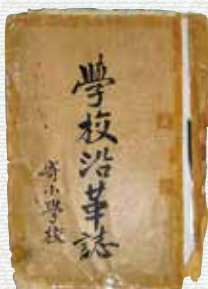 學校沿革誌
寄小學校